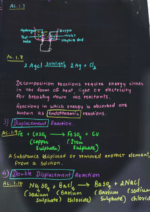 Ans. 8
2 AgCl sunlight 2 Ag + Cl₂
Decomposition reactions require energy either
in the form of heat, light or electricity
for breaking down the reactants.
Reactions in which energy is absorbed are
known as Endothermic reactions.
Displacement Reaction
Fe + CuSO₄ → FeSO₄ + Cu
(Copper (Iron
Sulphate) Sulphate)
A Substance displaced or removed another element,
from a solution.
Double Displacement Reaction
Na₂SO₄ + BaCl₂ → BaSO₄ + 2NaCl
(Sodium (Barium (Barium (Sodium
Sulphate) chloride) Sulphate) chloride)